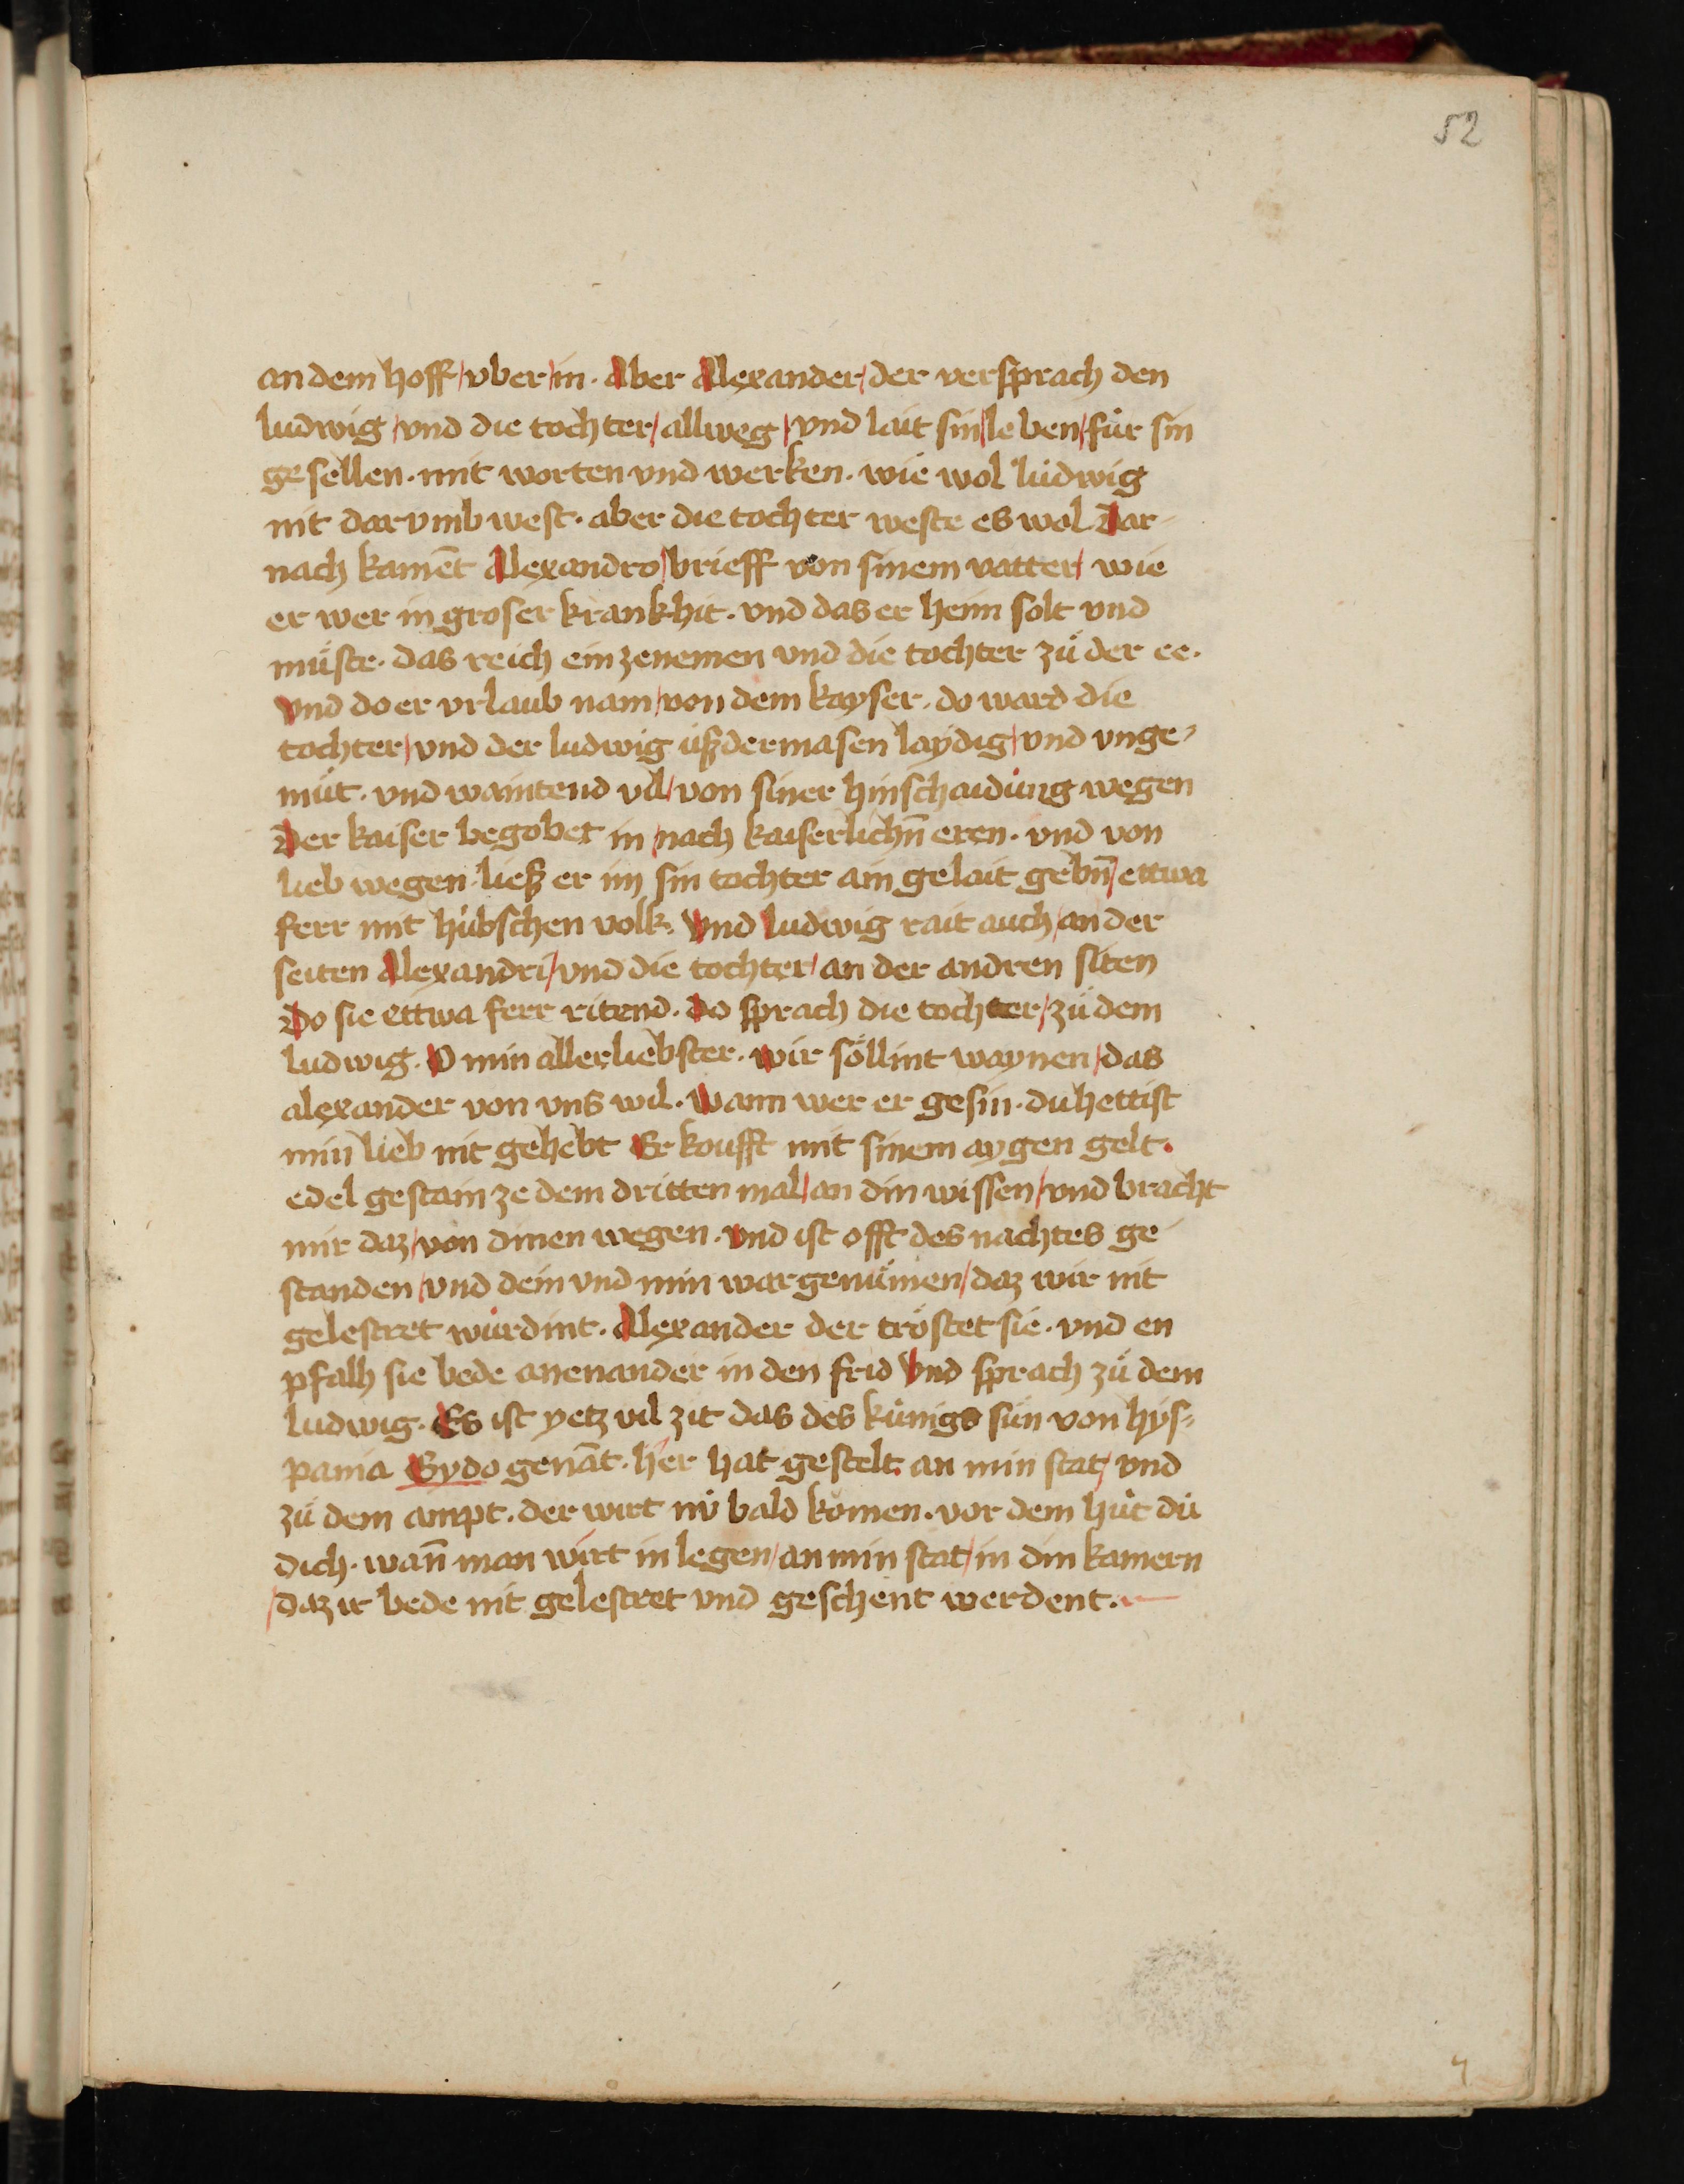 52
an dem hoff / vber / in · Aber Alexander / der versprach den
ludwig / vnd die tochter / allweg / vnd lait sin / leben / für sin
gesellen · mit worten vnd werken · wie wol ludwig
nit darvmb west · aber die tochter weste es wol Dar-
nach kament̄ Alexandro / brieff von sinem vatter / wie
er wer in groser krankhit · vnd das er heim solt vnd
müste · das reich ein zenemen vnd die tochter zů der ee ·
vnd do er vrlaub nam / von dem kayser · do ward die
tochter / vnd der ludwig ußdermasen laydig / vnd vnge-
můt · vnd waintend vil / von siner hinschaidung wegen
Der kaiser begobet in / nach kaiserlichn̄ eren · vnd von
lieb wegen ließ er im sin tochter ain gelait gebn̄ / ettwa
ferr mit hübschen volk · Vnd ludwig rait auch / an der
seiten Alexandri / vnd die tochter / an der andren siten
Do sie ettwa ferr ritend · do sprach die tochter / zů dem
ludwig · O min allerliebster · wir söllint waynen / das
alexander von vns wil · wann wer er gesin · du hettist
min lieb nit gehebt Er koufft mit sinem aygen gelt ·
edel gestain ze dem dritten mal / an din wissen / vnd bracht
mir daz / von dinen wegen · vnd ist offt des nachtes ge-
standen / vnd dein vnd min war genümen / daz wir nit
gelestret würdint · Alexander der tröstet sie · vnd en
pfalh sie bede anenander in den frid Vnd sprach zů dem
ludwig · Es ist yetz vil zit das des künigs sun von hys-
pania Gydo genāt · her hat gestelt an min stat / vnd
zů dem ampt · der wirt nv̊ bald komen · vor dem hüt du
dich · wan̄ man wirt in legen / an min stat / in din kamern
/ daz ir bede nit gelestret vnd geschent werdent ·